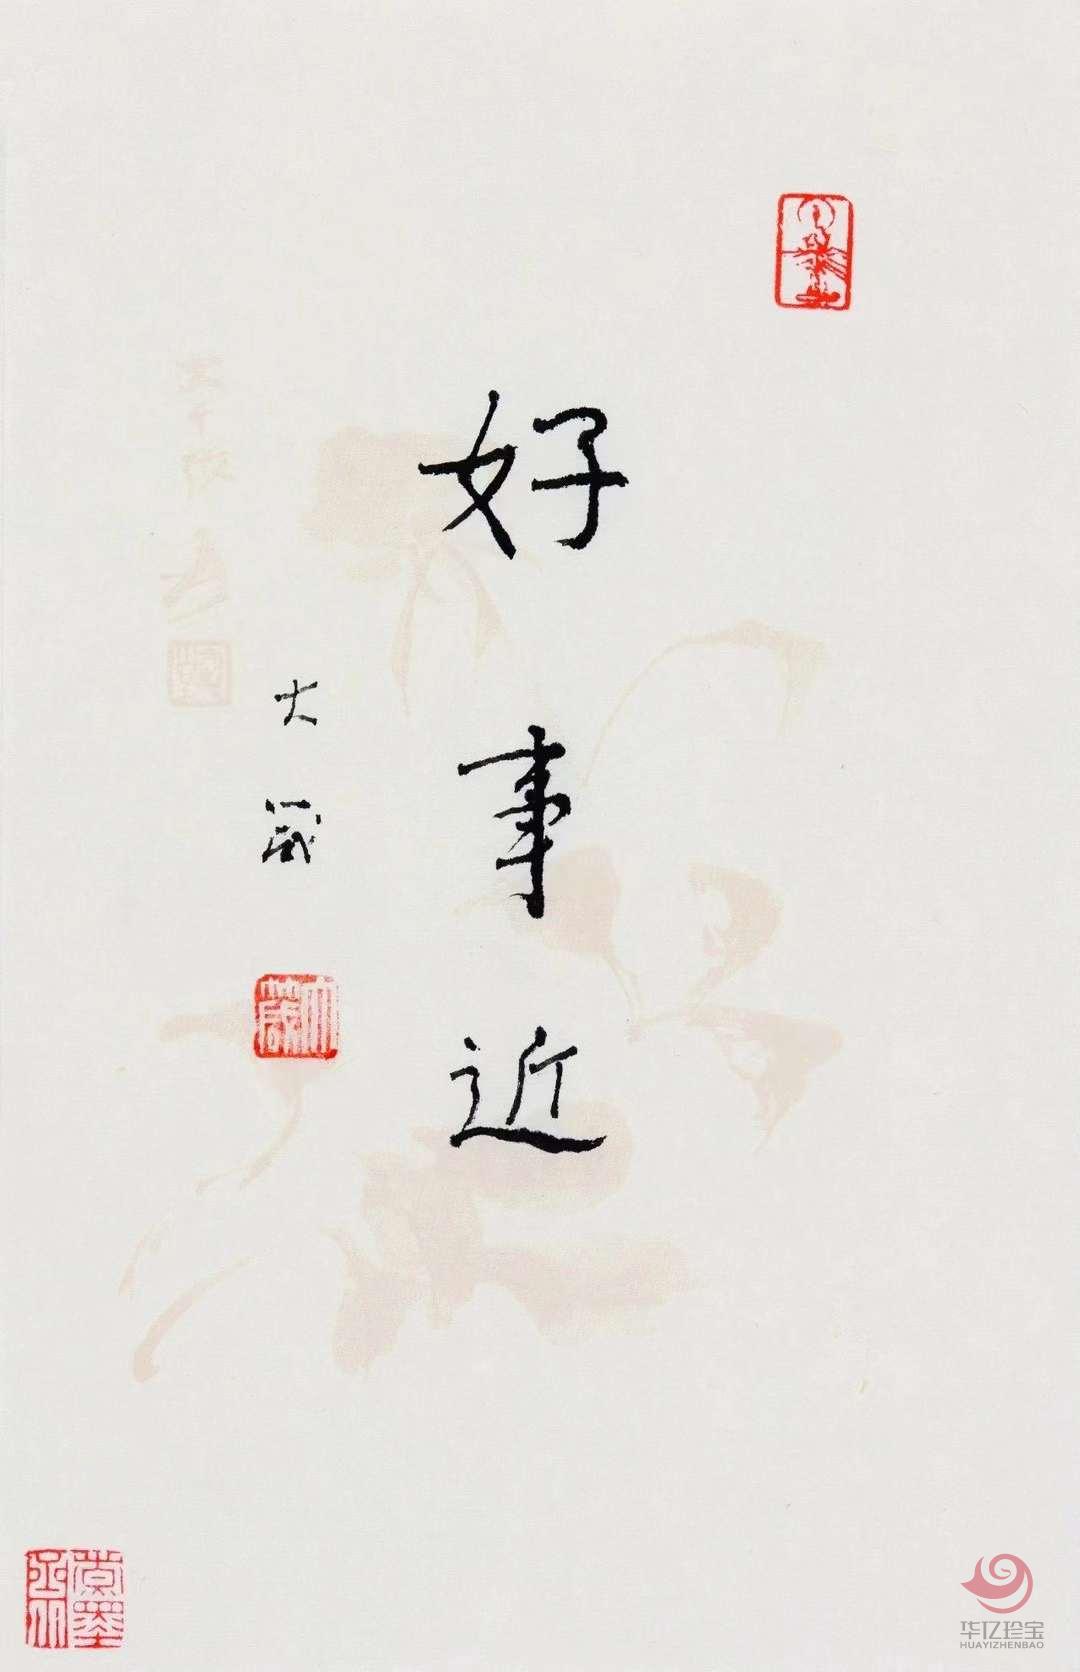 好事近
大箴
大箴
华亿珍宝
HUAYIZHENBAO